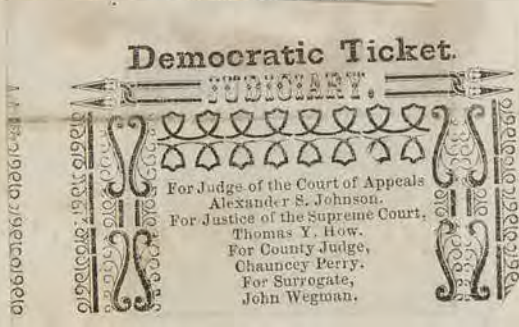 Democratic Ticket.
JUDICIARY.
For Judge of the Court of Appeals
Alexander S. Johnson.
For Justice of the Supreme Court,
Thomas Y. How.
For County Judge,
Chauncey Perry.
For Surrogate,
John Wegman.